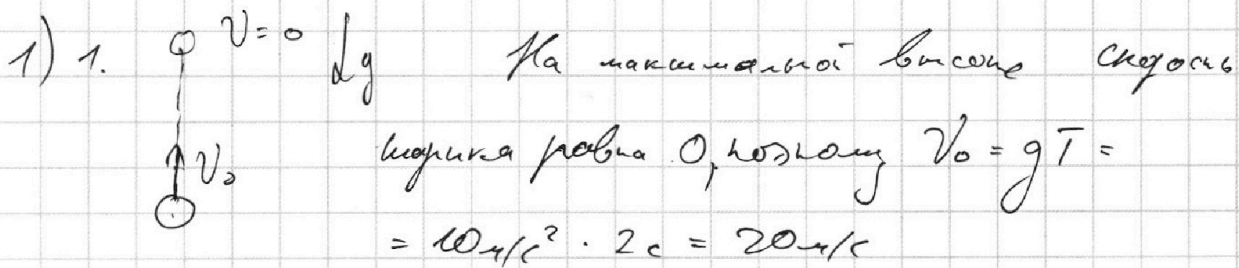 1) 1. V = 0 g На максимальной высоте скорость
шарика равна 0, поэтому V₀ = gT =
V₀
= 10 м/с² · 2 с = 20 м/с